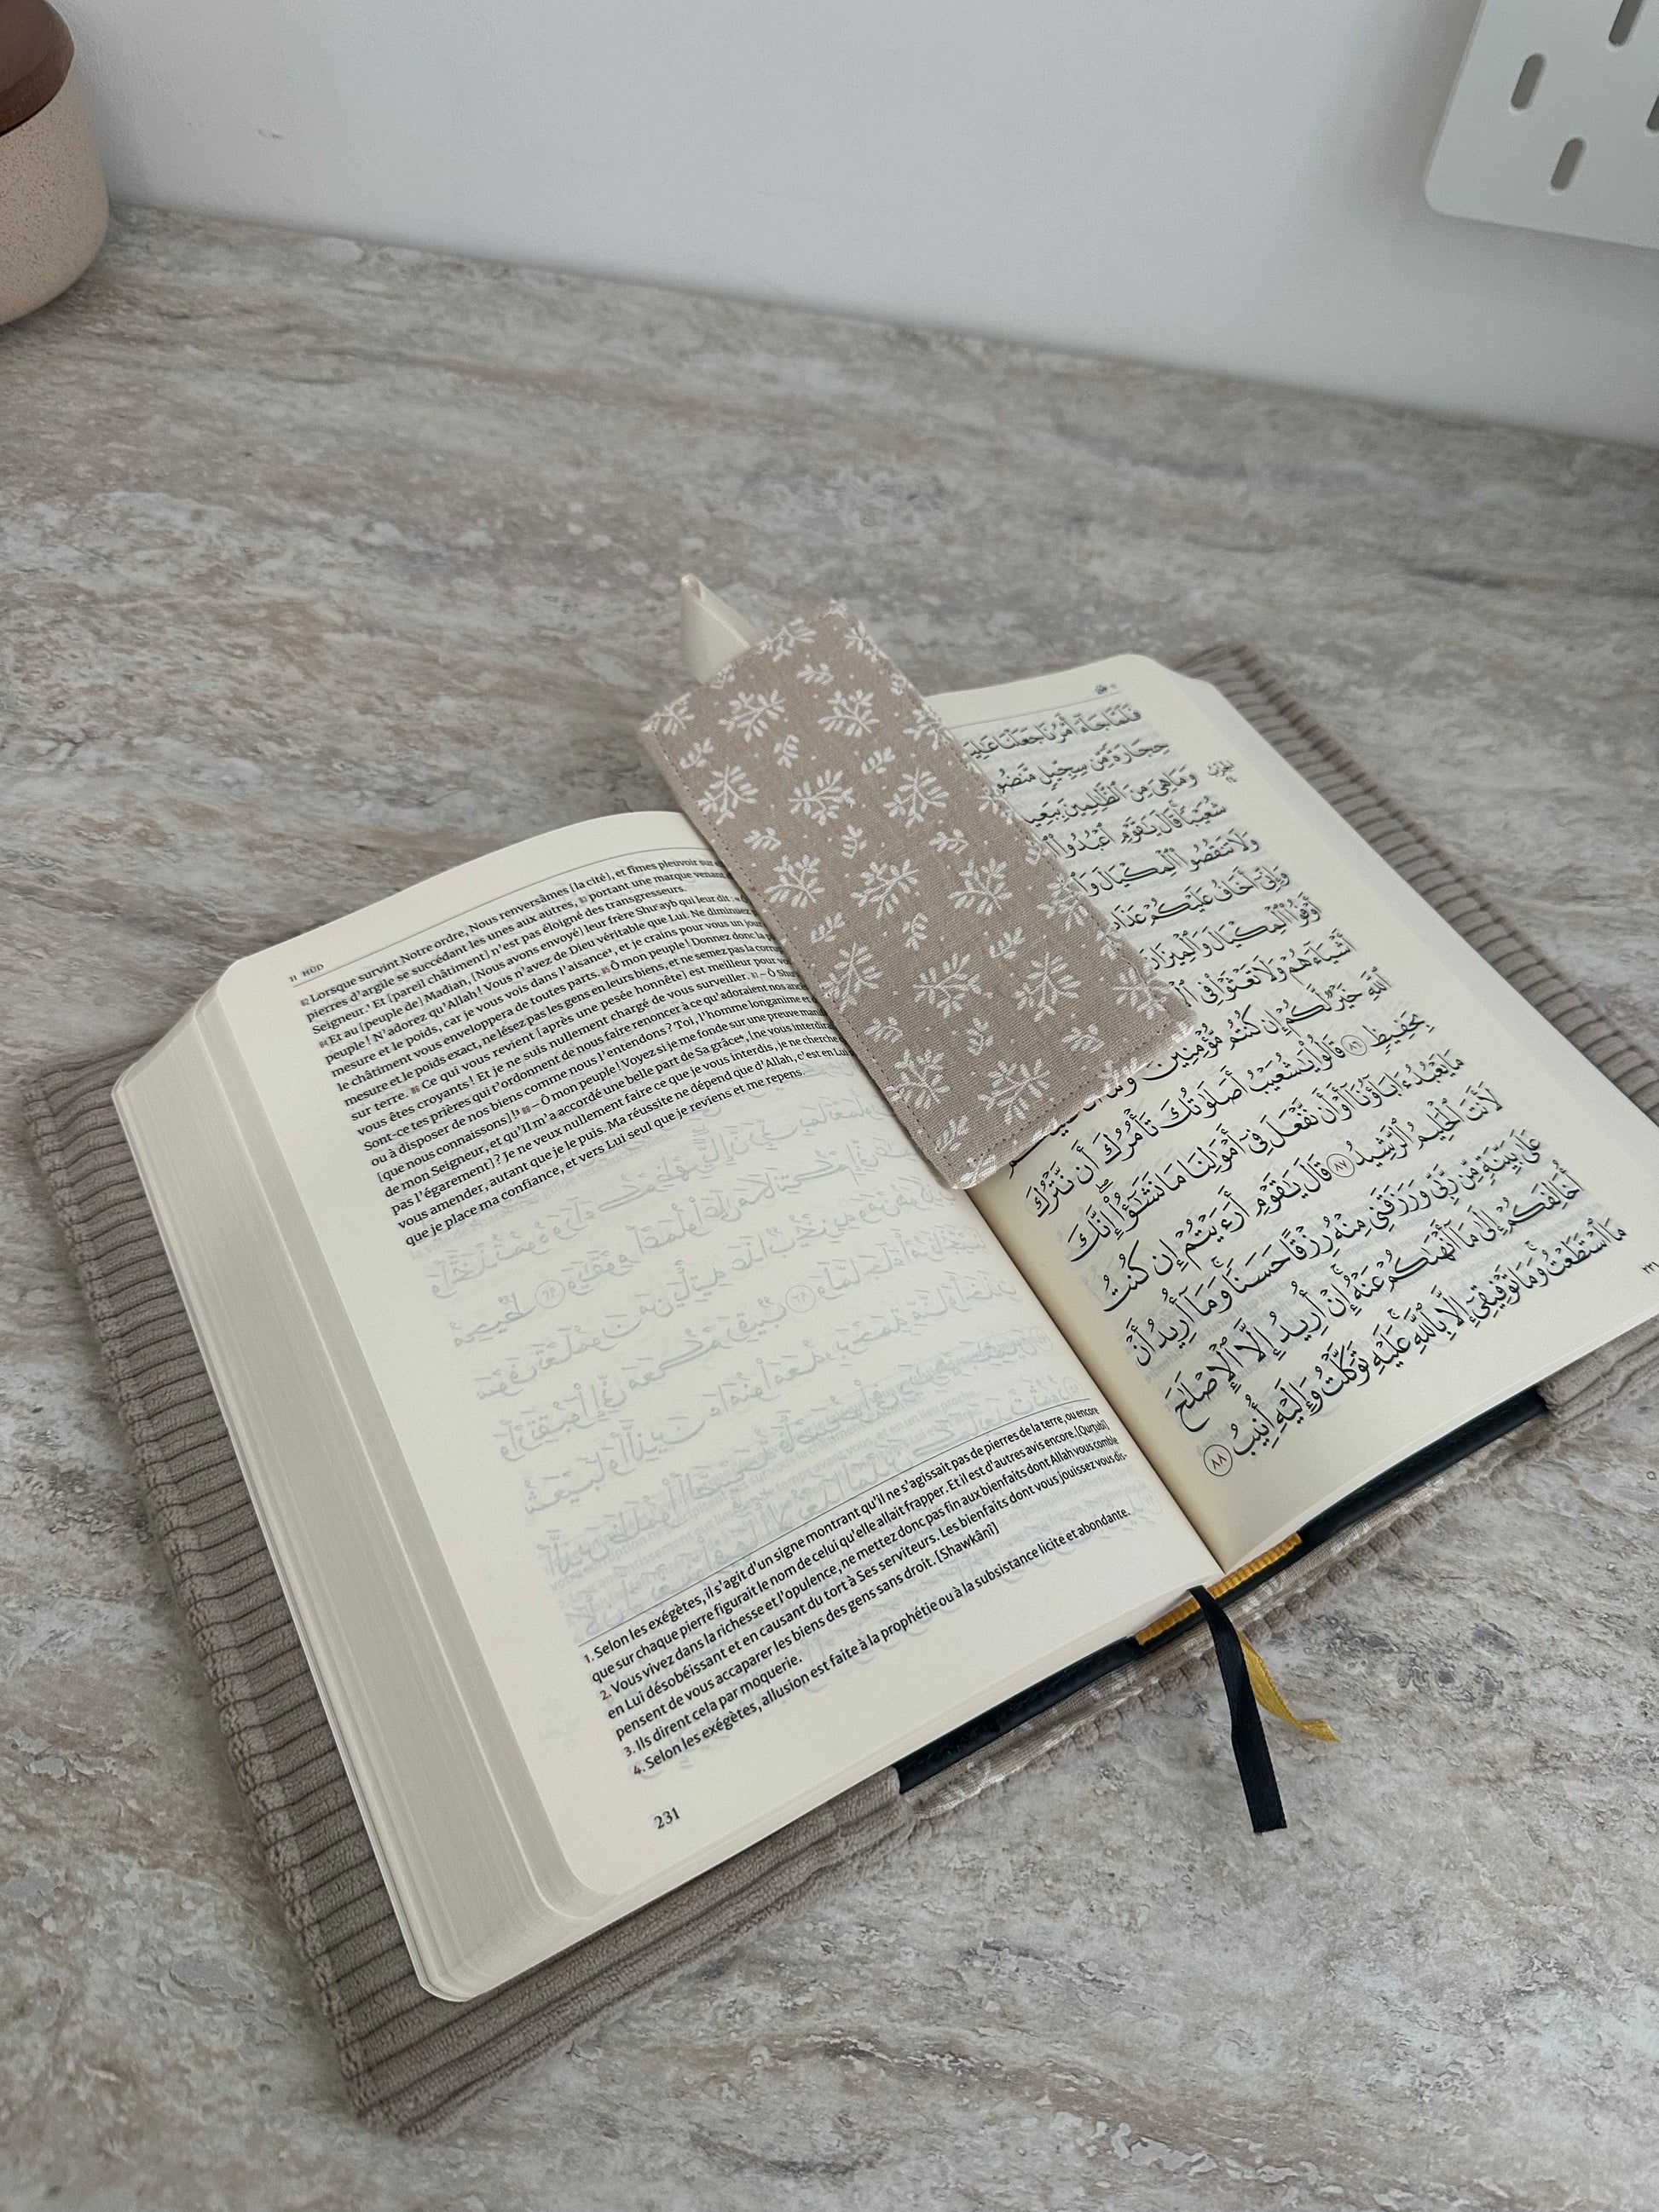 11 HÛD
82 Lorsque survint Notre ordre, Nous renversâmes [la cité], et fîmes pleuvoir sur
pierres d'argile se succédant les unes aux autres, 83 portant une marque venant
Seigneur.¹ Et [pareil châtiment] n'est pas éloigné des transgresseurs.
84 Et au [peuple de] Madian, [Nous avons envoyé] leur frère Shu'ayb qui leur dit :
peuple ! N'adorez qu'Allah ! Vous n'avez de Dieu véritable que Lui. Ne diminuez
mesure et le poids, car je vous vois dans l'aisance², et je crains pour vous un
le châtiment vous enveloppera de toutes parts. 85 Ô mon peuple ! Donnez donc la
mesure et le poids exact, ne lésez pas les gens en leurs biens, et ne semez pas la
sur terre. 86 Ce qui vous revient [après une pesée honnête] est meilleur pour
vous êtes croyants ! Et je ne suis nullement chargé de vous surveiller. 87 – Ô
Sont-ce tes prières qui t'ordonnent de nous faire renoncer à ce qu'adoraient nos
ou à disposer de nos biens comme nous l'entendons ? Toi, l'homme longanime et
[que nous connaissons] !³ 88 – Ô mon peuple ! Voyez si je me fonde sur une preuve
de mon Seigneur, et qu'Il m'a accordé une belle part de Sa grâce⁴,
pas l'égarement] ? Je ne veux nullement faire ce que je vous interdis, je ne cherche
vous amender, autant que je le puis. Ma réussite ne dépend que d'Allah, c'est en Lui
que je place ma confiance, et vers Lui seul que je reviens et me repens.
1. Selon les exégètes, il s'agit d'un signe montrant qu'il ne s'agissait pas de pierres de la terre, ou encore
que sur chaque pierre figurait le nom de celui qu'elle allait frapper. Et il est d'autres avis encore. [Qurtubî]
2. Vous vivez dans la richesse et l'opulence, ne mettez donc pas fin aux bienfaits dont Allah vous comble
en Lui désobéissant et en causant du tort à Ses serviteurs. Les bienfaits dont vous jouissez vous dis-
pensent de vous accaparer les biens des gens sans droit. [Shawkânî]
3. Ils dirent cela par moquerie.
4. Selon les exégètes, allusion est faite à la prophétie ou à la subsistance licite et abondante.
231
فَلَمَّا جَآءَ أَمْرُنَا جَعَلْنَا
حِجَارَةً مِّن سِجِّيلٍ
وَمَا هِىَ مِنَ ٱلظَّٰلِمِينَ بِبَعِيدٍ
شُعَيْبًا قَالَ يَٰقَوْمِ ٱعْبُدُوا۟
وَلَا تَنقُصُوا۟ ٱلْمِكْيَالَ
وَإِنِّىٓ أَخَافُ عَلَيْكُمْ عَذَابَ
أَوْفُوا۟ ٱلْمِكْيَالَ وَٱلْمِيزَانَ
أَشْيَآءَهُمْ وَلَا تَعْثَوْا۟ فِى
ٱللَّهِ خَيْرٌ لَّكُمْ إِن كُنتُم مُّؤْمِنِينَ
بِحَفِيظٍ ٨٦ قَالُوا۟ يَٰشُعَيْبُ أَصَلَوٰتُكَ تَأْمُرُكَ أَن نَّتْرُكَ
مَا يَعْبُدُ ءَابَآؤُنَآ أَوْ أَن نَّفْعَلَ فِىٓ أَمْوَٰلِنَا مَا نَشَٰٓؤُا۟ إِنَّكَ
لَأَنتَ ٱلْحَلِيمُ ٱلرَّشِيدُ ٨٧ قَالَ يَٰقَوْمِ أَرَءَيْتُمْ إِن كُنتُ
عَلَىٰ بَيِّنَةٍ مِّن رَّبِّى وَرَزَقَنِى مِنْهُ رِزْقًا حَسَنًا وَمَآ أُرِيدُ أَنْ
أُخَالِفَكُمْ إِلَىٰ مَآ أَنْهَىٰكُمْ عَنْهُ إِنْ أُرِيدُ إِلَّا ٱلْإِصْلَٰحَ
مَا ٱسْتَطَعْتُ وَمَا تَوْفِيقِىٓ إِلَّا بِٱللَّهِ عَلَيْهِ تَوَكَّلْتُ وَإِلَيْهِ أُنِيبُ ٨٨
٢٣١